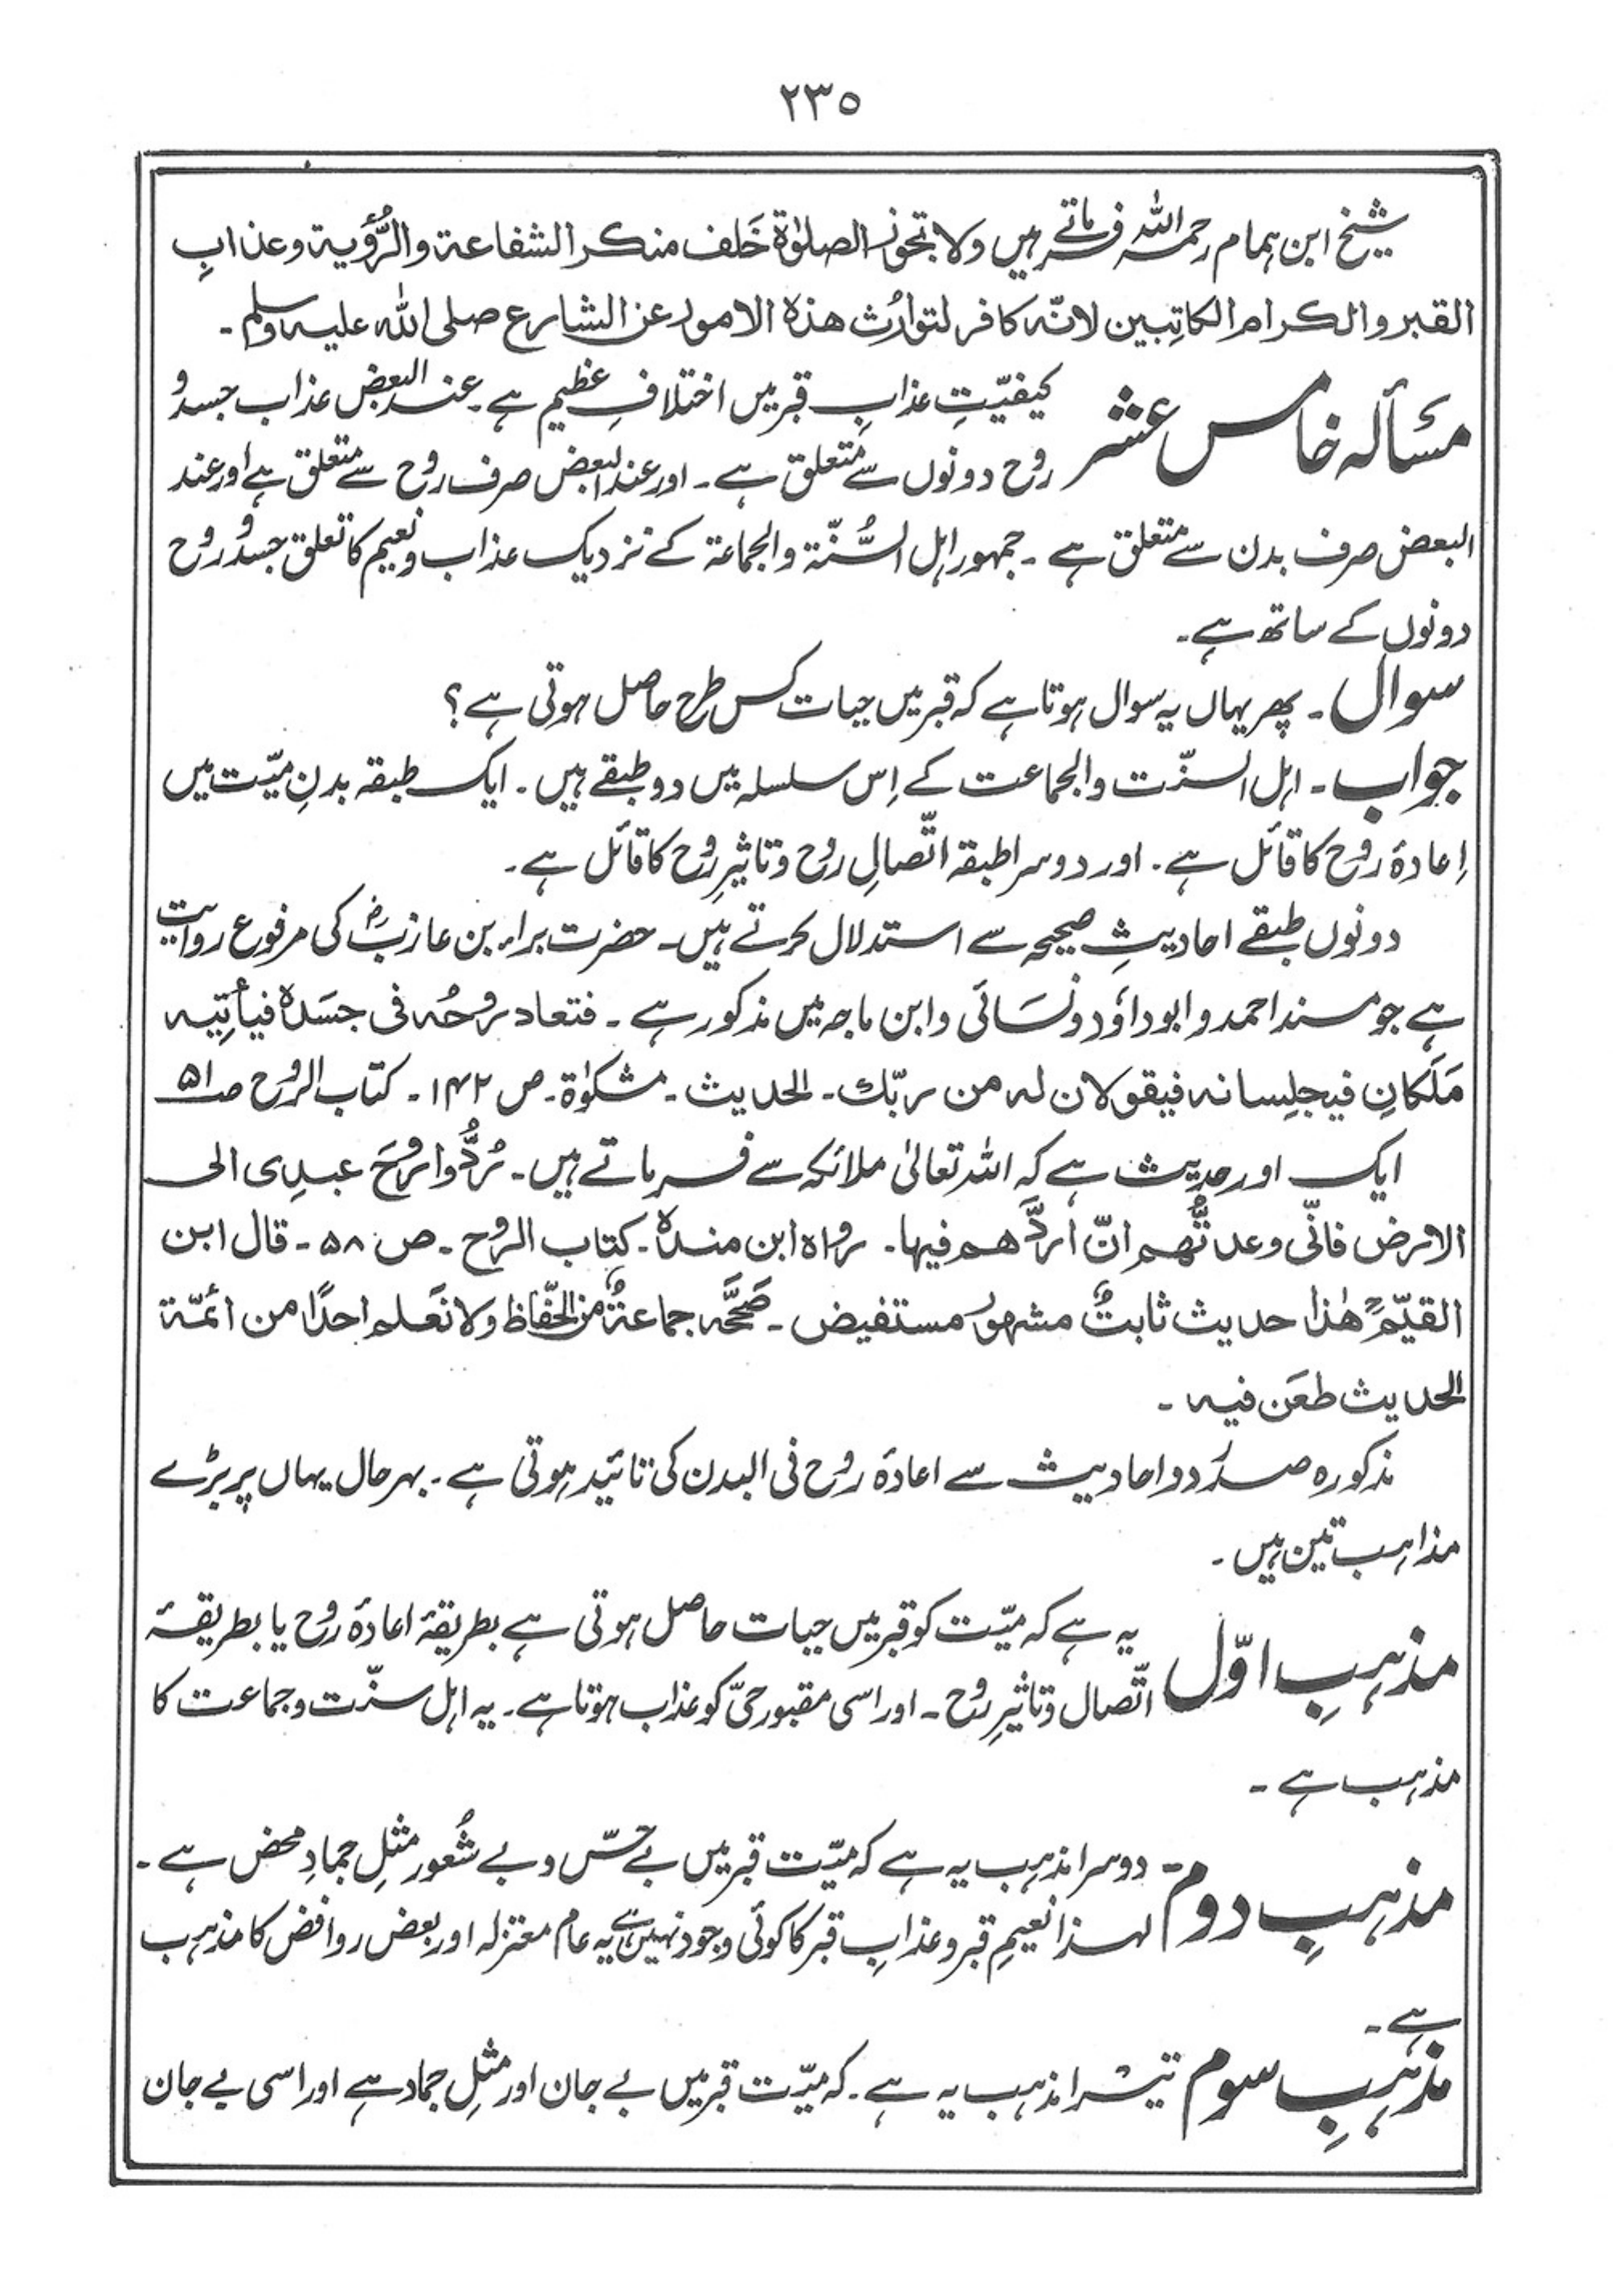 ۲۳۵
شیخ ابن ہمام رحمہ اللہ فرماتے ہیں ولا تجوز الصلوٰۃ خَلف منکر الشفاعۃ والرُّؤیۃ وعذابِ
القبر والکرام الکاتِبین لانّہ کافر لتوارُث ھذہ الامور عن الشارع صلی اللہ علیہ وسلم ۔
مسألہ خامس عشر کیفیّتِ عذابِ قبر میں اختلافِ عظیم ہے ۔ عند البعض عذاب جسد و
روح دونوں سے متعلق ہے ۔ اور عند البعض صرف روح سے متعلق ہے اور عند
البعض صرف بدن سے متعلق ہے ۔ جمہور اہل السُّنّۃ والجماعۃ کے نزدیک عذاب و نعیم کا تعلق جسد و روح
دونوں کے ساتھ ہے ۔
سوال ۔ پھر یہاں یہ سوال ہوتا ہے کہ قبر میں حیات کس طرح حاصل ہوتی ہے ؟
جواب ۔ اہل السنّت والجماعت کے اِس سلسلہ میں دو طبقے ہیں ۔ ایک طبقہ بدنِ میّت میں
اِعادۂ روح کا قائل ہے ۔ اور دوسرا طبقہ اتّصالِ روح و تاثیرِ روح کا قائل ہے ۔
دونوں طبقے احادیثِ صحیحہ سے استدلال کرتے ہیں ۔ حضرت براء بن عازبؓ کی مرفوع روایت
ہے جو مسند احمد و ابوداؤد و نسَائی و ابن ماجہ میں مذکور ہے ۔ فتعاد روحُہ فی جسَدہ فیأتِیہ
مَلَکانِ فیجلِسانہ فیقولان لہ من ربّك ۔ الحدیث ۔ مشکوٰۃ ۔ ص ۱۴۲ ۔ کتاب الروح صـ۵۱
ایک اور حدیث ہے کہ اللہ تعالیٰ ملائکہ سے فرماتے ہیں ۔ رُدُّوا روحَ عبدِی الی
الارض فانّی وعدتُّھم انّ اردَّھم فیھا ۔ رواہ ابن مندہ ۔ کتاب الروح ۔ ص ۵۸ ۔ قال ابن
القیّمؒ ھٰذا حدیث ثابتٌ مشھور مستفیض ۔ صَحَّحَہ جماعۃٌ من الحُفّاظ ولا نَعَلم احدًا من ائمّۃ
الحدیث طعَن فیہ ۔
مذکورہ صدر دو احادیث سے اعادۂ روح فی البدن کی تائید ہوتی ہے ۔ بہرحال یہاں پر بڑے
مذاہب تین ہیں ۔
مذہبِ اوّل یہ ہے کہ میّت کو قبر میں حیات حاصل ہوتی ہے بطریقۂ اعادۂ روح یا بطریقۂ
اتّصال و تاثیرِ روح ۔ اور اسی مقبور حیّ کو عذاب ہوتا ہے ۔ یہ اہل سنّت و جماعت کا
مذہب ہے ۔
مذہبِ دوم ۔ دوسرا مذہب یہ ہے کہ میّت قبر میں بے حِسّ و بے شُعور مثلِ جمادِ محض ہے ۔
لہذا نعیمِ قبر و عذابِ قبر کا کوئی وجود نہیں ہے یہ عام معتزلہ اور بعض روافض کا مذہب
ہے ۔
مذہبِ سوم تیسرا مذہب یہ ہے ۔ کہ میّت قبر میں بے جان اور مثلِ جماد ہے اور اسی بے جان